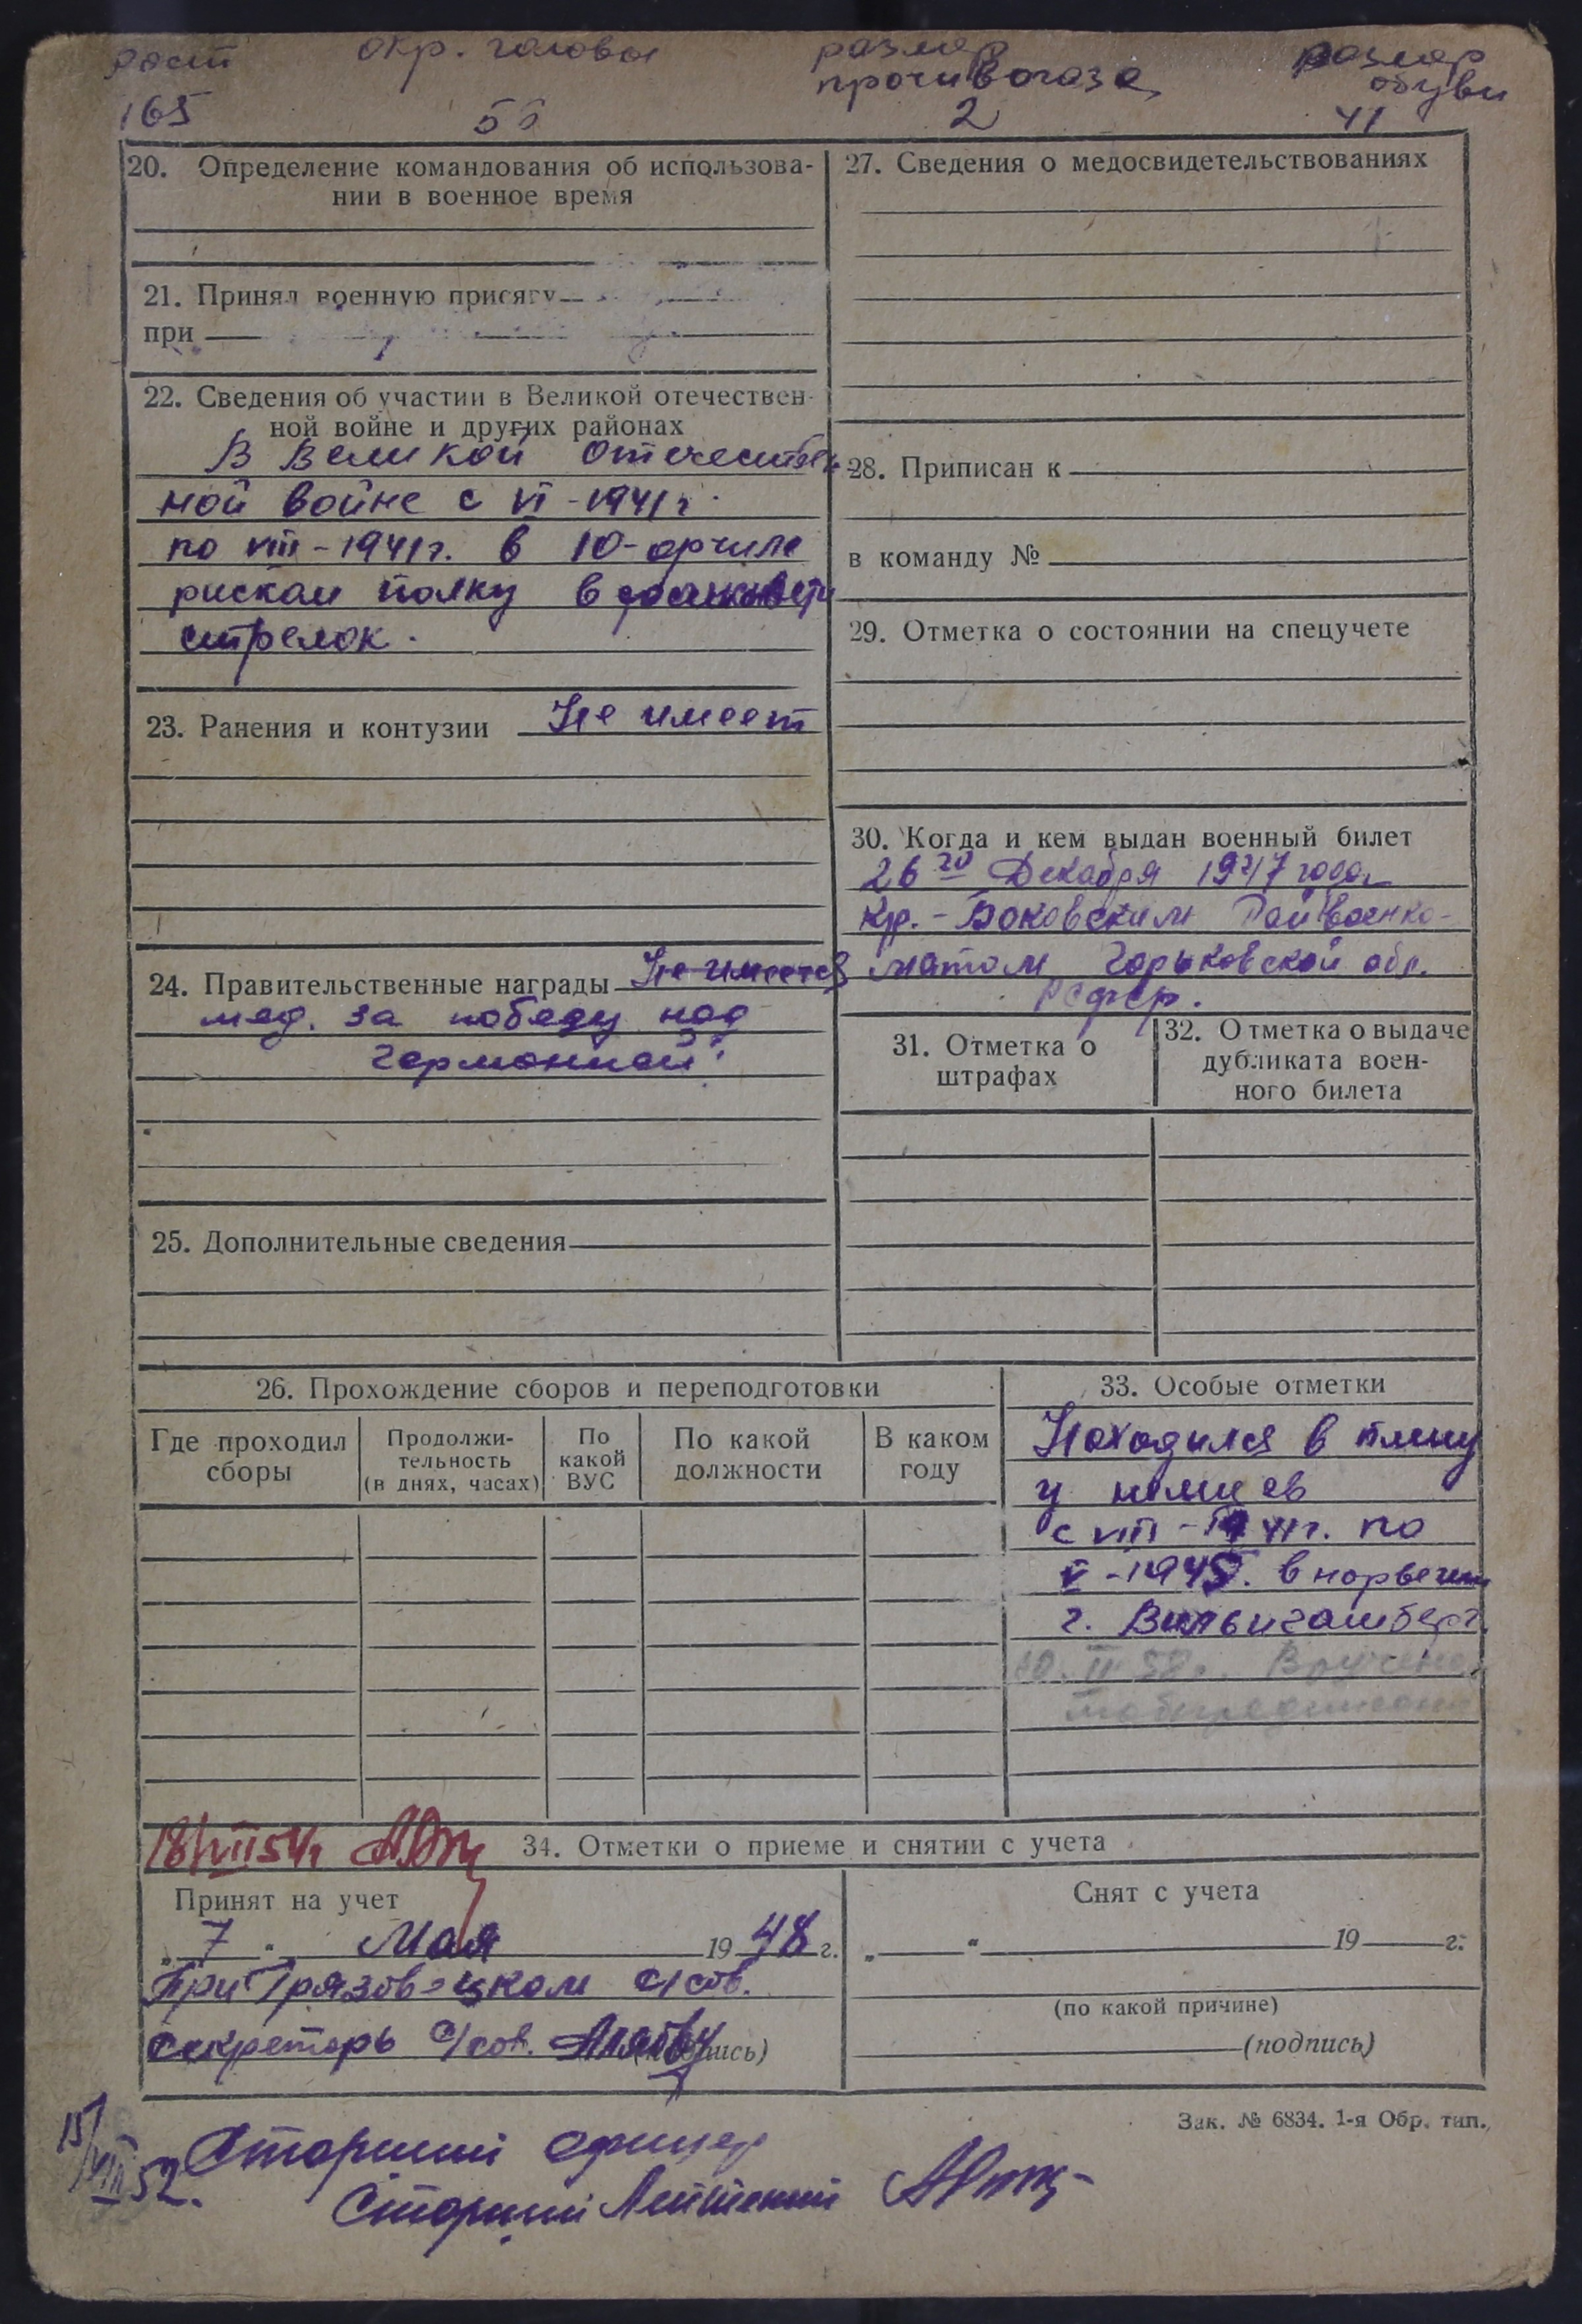 рост окр. головы размер противогаза размер обуви
165 56 2 41
20. Определение командования об использова-
нии в военное время
21. Принял военную присягу
при
22. Сведения об участии в Великой отечествен-
ной войне и других районах
В Великой Отечествен-
ной войне с VI-1941г.
по VIII-1941г. в 10-артиле
риском полку в
стрелок.
23. Ранения и контузии Не имеет
24. Правительственные награды Не имеет
мед. За победу над
Германией"
25. Дополнительные сведения
27. Сведения о медосвидетельствованиях
28. Приписан к
в команду №
29. Отметка о состоянии на спецучете
30. Когда и кем выдан военный билет
26го Декабря 1947 года
Кр.-Баковским Райвоенко-
матом Горьковской обл.
РСФСР.
31. Отметка о
штрафах
32. Отметка о выдаче
дубликата воен-
ного билета
26. Прохождение сборов и переподготовки
Где проходил
сборы
Продолжи-
тельность
(в днях, часах)
По
какой
ВУС
По какой
должности
В каком
году
33. Особые отметки
Находился в плену
у немцев
с VIII-1941г. по
V-1945. в норвегии
г.
Вручено
мобпредписание
18/VIII 54г
34. Отметки о приеме и снятии с учета
Принят на учет
„7" Мая 1948 г.
При Грязовецком с/сов.
Секретарь с/сов. (подпись)
Снят с учета
„ " 19 г.
(по какой причине)
(подпись)
Зак. № 6834. 1-я Обр. тип.
15/VIII 52. Старший офицер
Старший Лейтенант